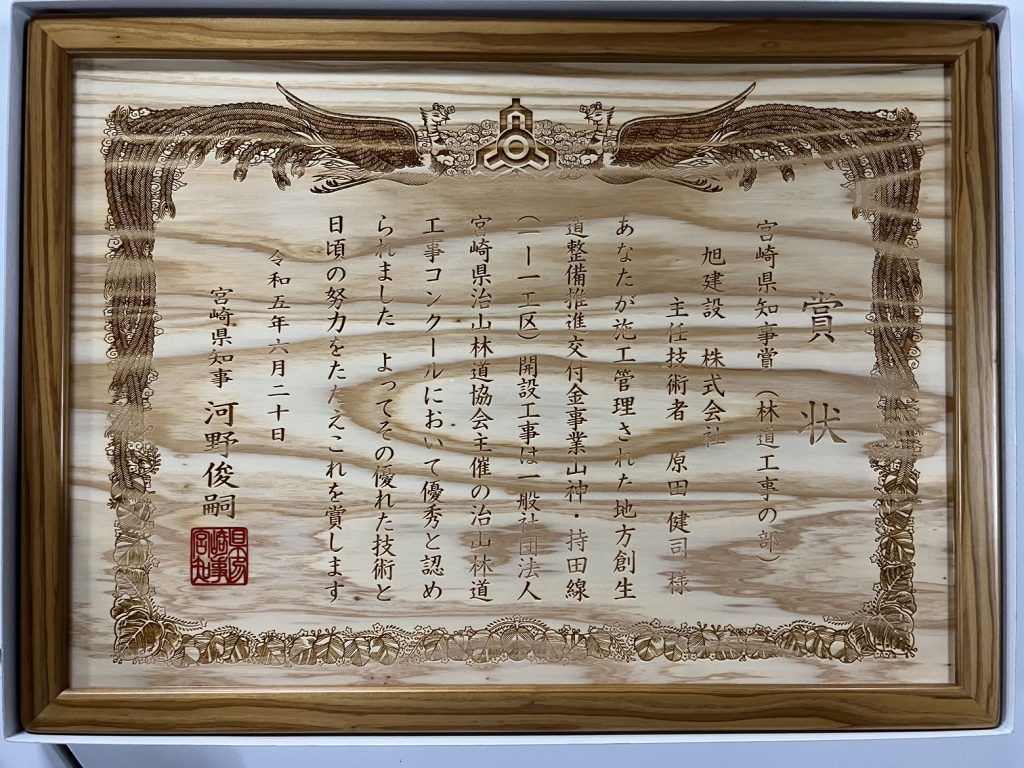 賞状
宮崎県知事賞（林道工事の部）
旭建設　株式会社
主任技術者　原田　健司　様
あなたが施工管理された地方創生
道整備推進交付金事業山神・持田線
（一－一工区）開設工事は一般社団法人
宮崎県治山林道協会主催の治山林道
工事コンクールにおいて優秀と認め
られました　よってその優れた技術と
日頃の努力をたたえこれを賞します
令和五年六月二十日
宮崎県知事　河野俊嗣